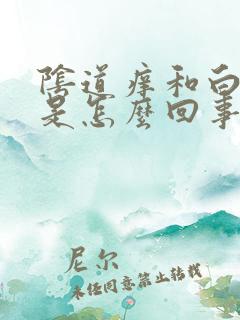 陰道痒和白
是怎麼回事
尼尔
未经同意禁止转载